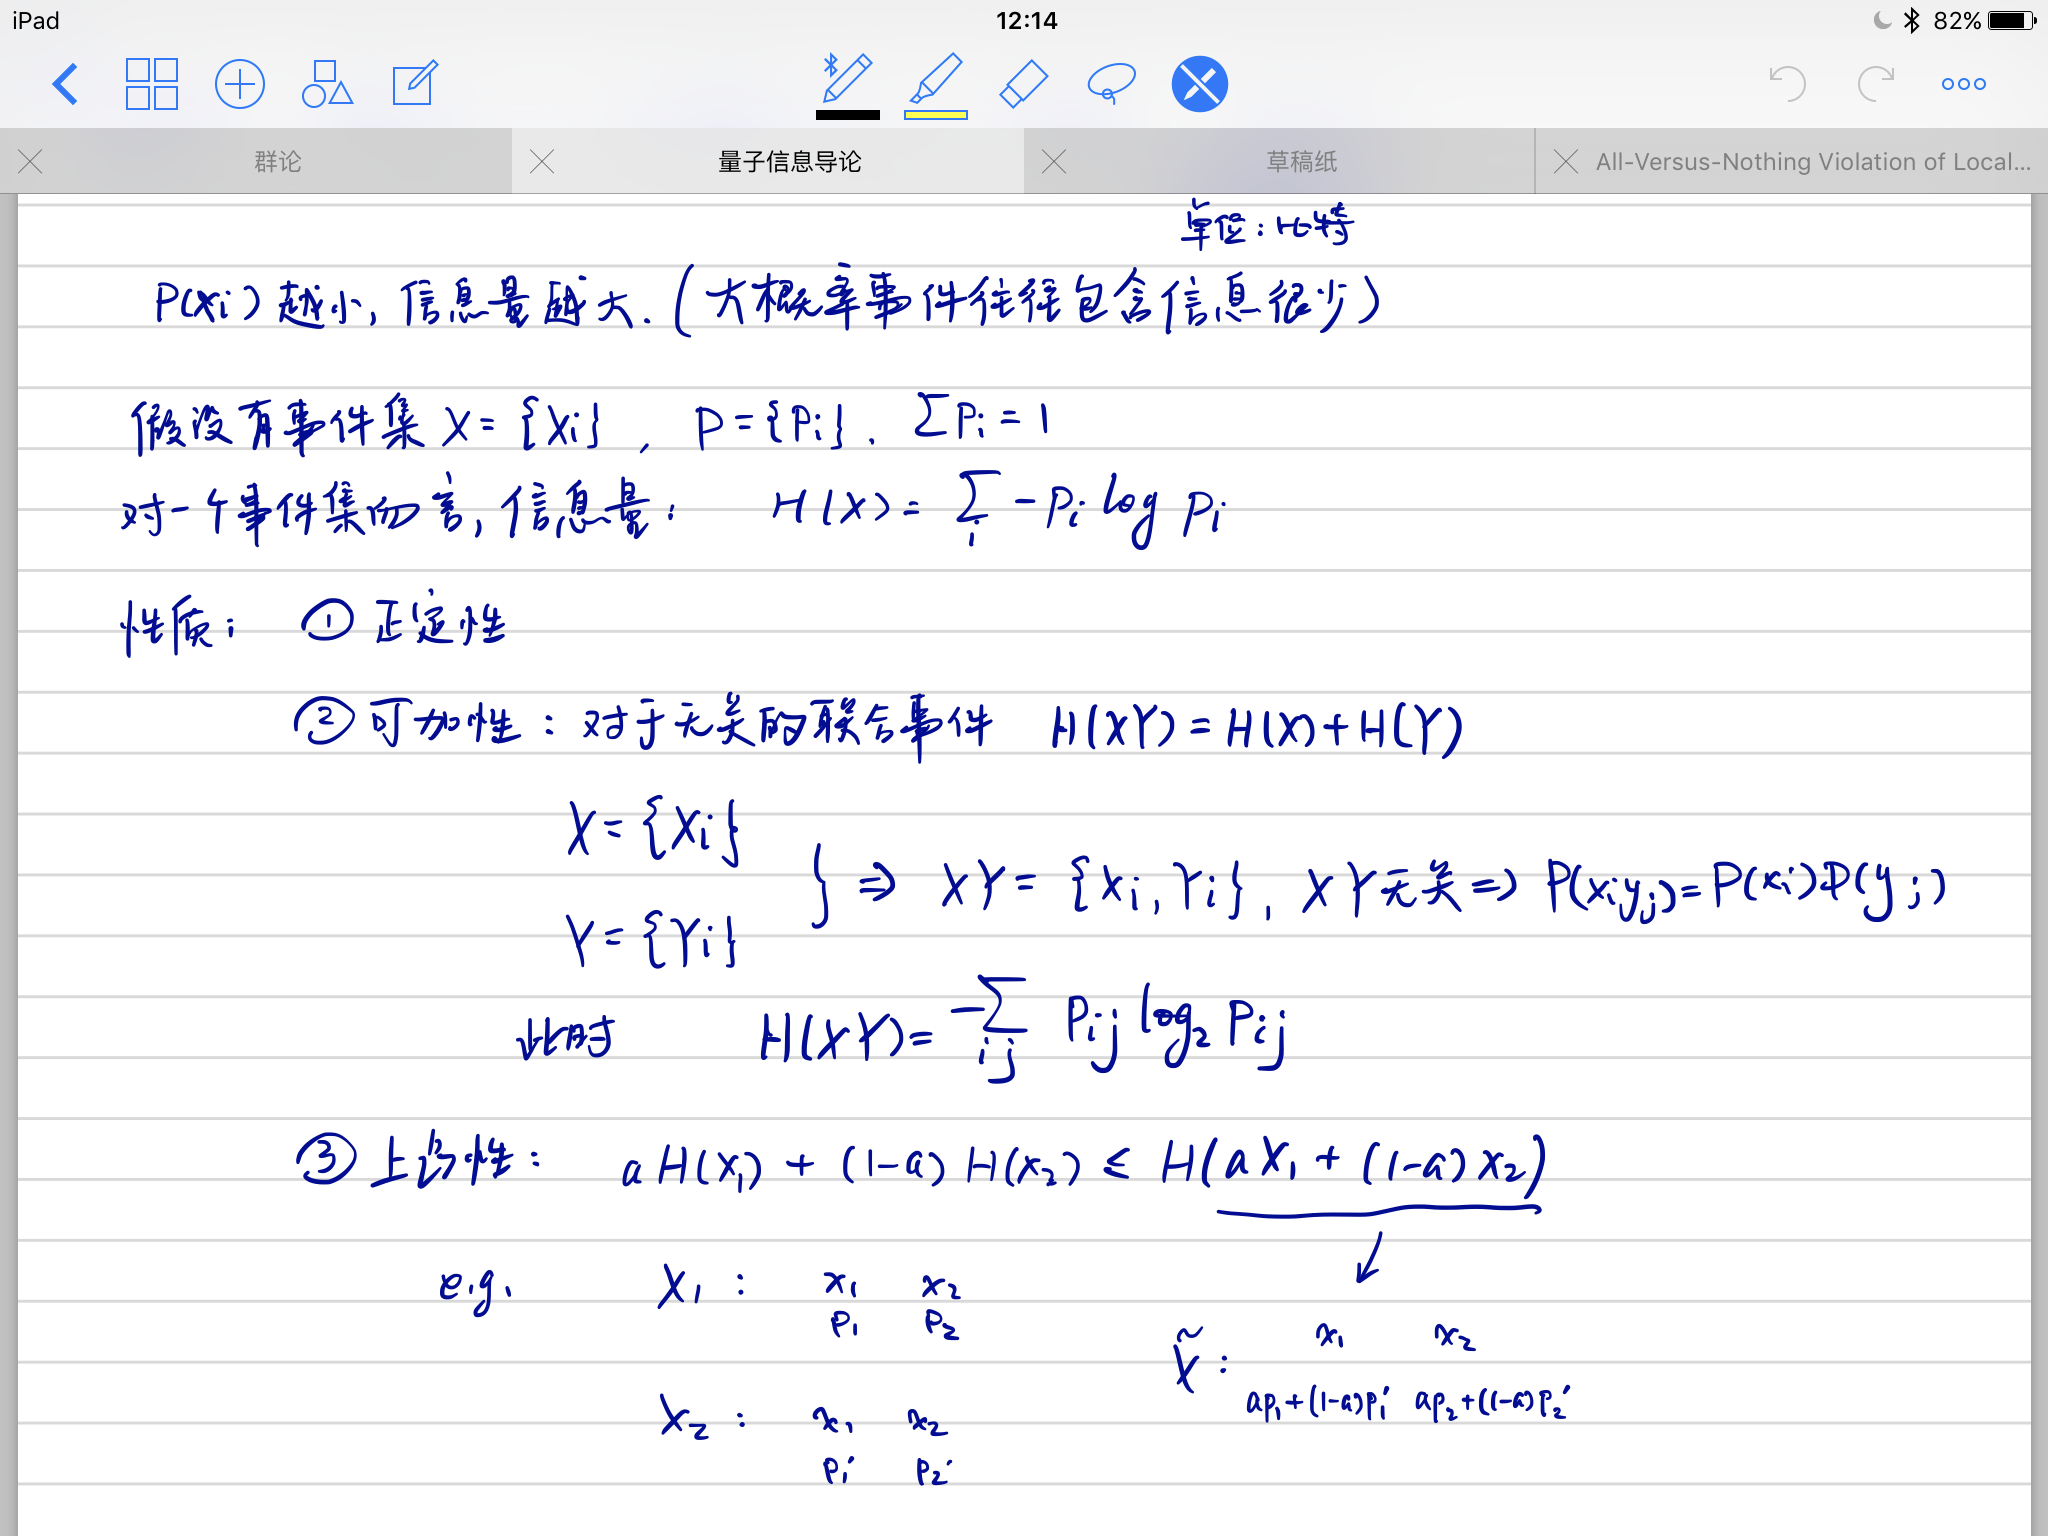 iPad 12:14 82%
群论 量子信息导论 草稿纸 All-Versus-Nothing Violation of Local...
单位：比特
P(xi) 越小, 信息量越大. (大概率事件往往包含信息很少)
假设有事件集 X = {Xi}, P = {Pi}. ∑Pi = 1
对一个事件集而言, 信息量: H(X) = ∑i -Pi log Pi
性质: ① 正定性
② 可加性: 对于无关的联合事件 H(XY) = H(X) + H(Y)
X = {Xi}
Y = {Yi}
} ⇒ XY = {Xi, Yi}, XY无关 ⇒ P(xiyj) = P(xi)P(yj)
此时 H(XY) = -∑ij Pij log₂ Pij
③ 上凸性: aH(X₁) + (1-a)H(X₂) ≤ H(aX₁ + (1-a)X₂)
e.g. X₁: x₁ x₂
P₁ P₂
X̃: x₁ x₂
ap₁+(1-a)p₁' ap₂+(1-a)p₂'
X₂: x₁ x₂
P₁' P₂'